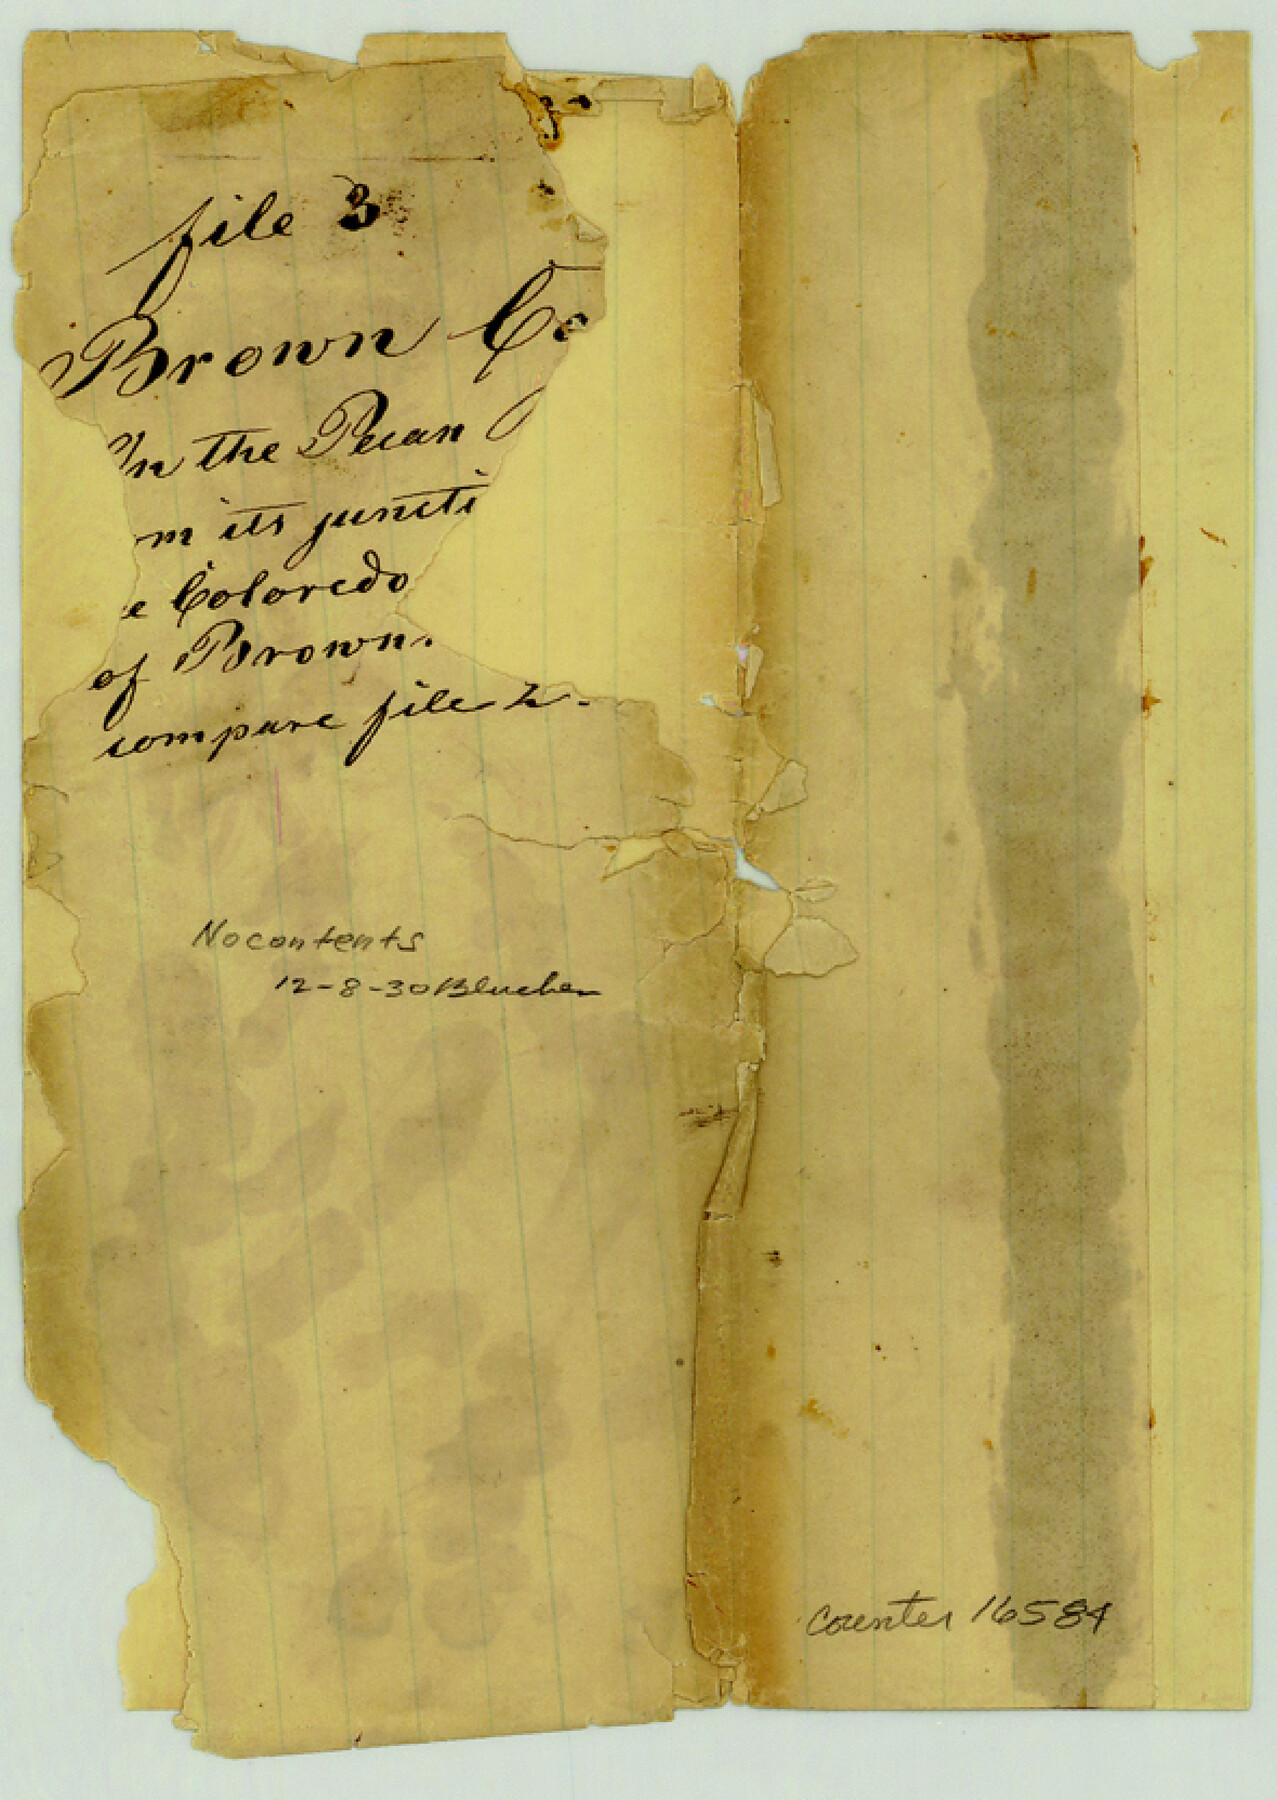 file 3
Brown Co
On the Pecan
om its juncti
e Coloredo
of Brown.
compare file 2.
No contents
12-8-30 Blucher
Counter 16584